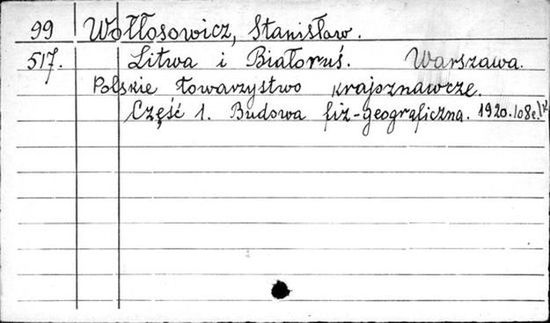 99 Wołłosowicz, Stanisław.
517. Litwa i Białoruś. Warszawa.
Polskie towarzystwo krajoznawcze.
Część 1. Budowa fiz-geograficzna. 1920. 108 c.